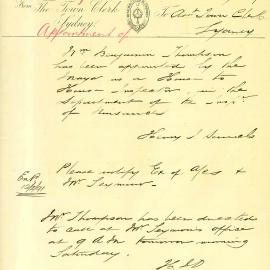 From The Town Clerk To Act Town Clerk
Sydney
Appointment of
Mr Benjamin Thompson
has been appointed by the
Mayor as a House to
House Inspector in the
Department of the
of Nuisances
Henry S
Please notify Ex of A/cs &
Mr Seymour.
Mr Thompson has been directed
to call at Mr Seymours office
at 9 A.M. tomorrow morning
Saturday.